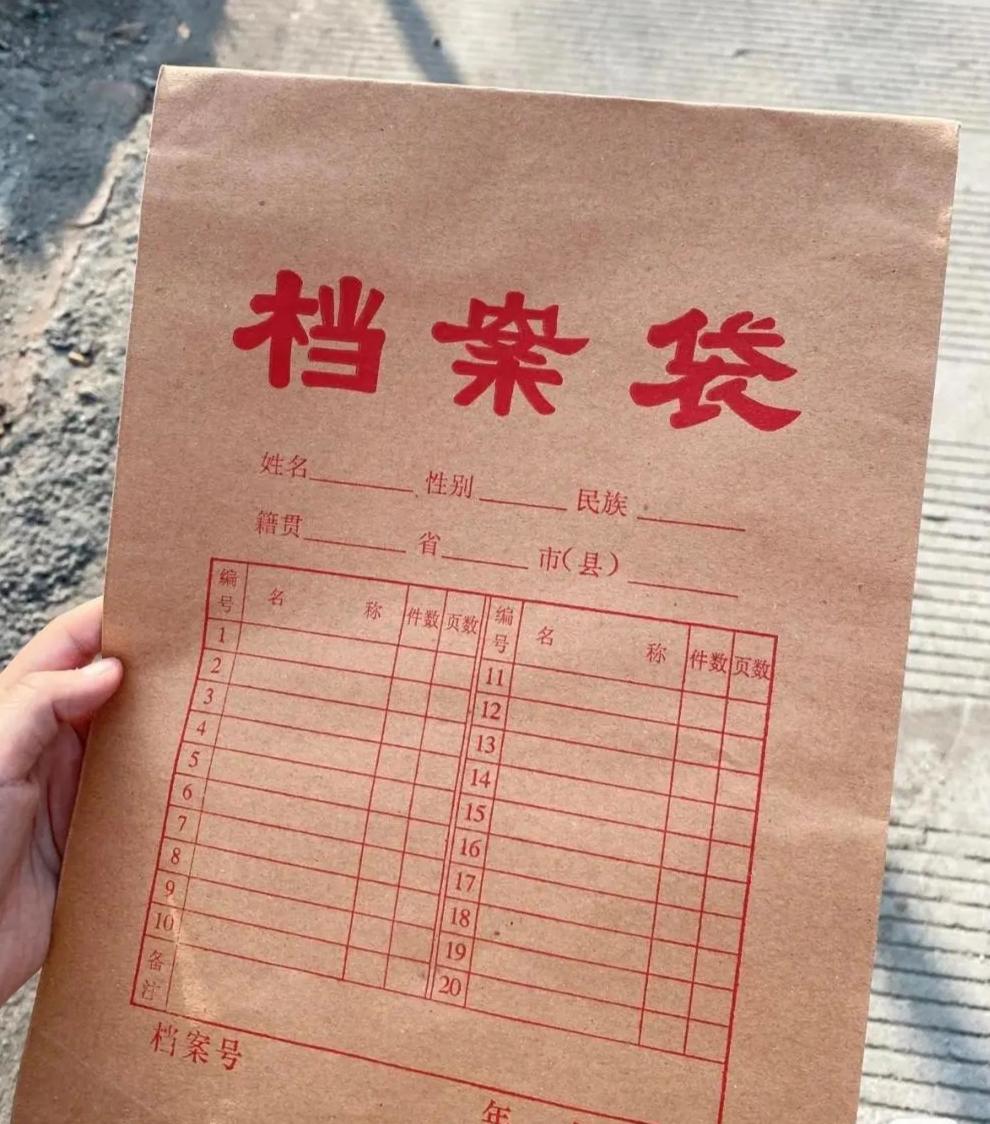 档案袋
姓名______ 性别______ 民族______
籍贯______ 省______ 市(县)______
编号 名称 件数 页数 编号 名称 件数 页数
1 11
2 12
3 13
4 14
5 15
6 16
7 17
8 18
9 19
10 20
备注
档案号
年